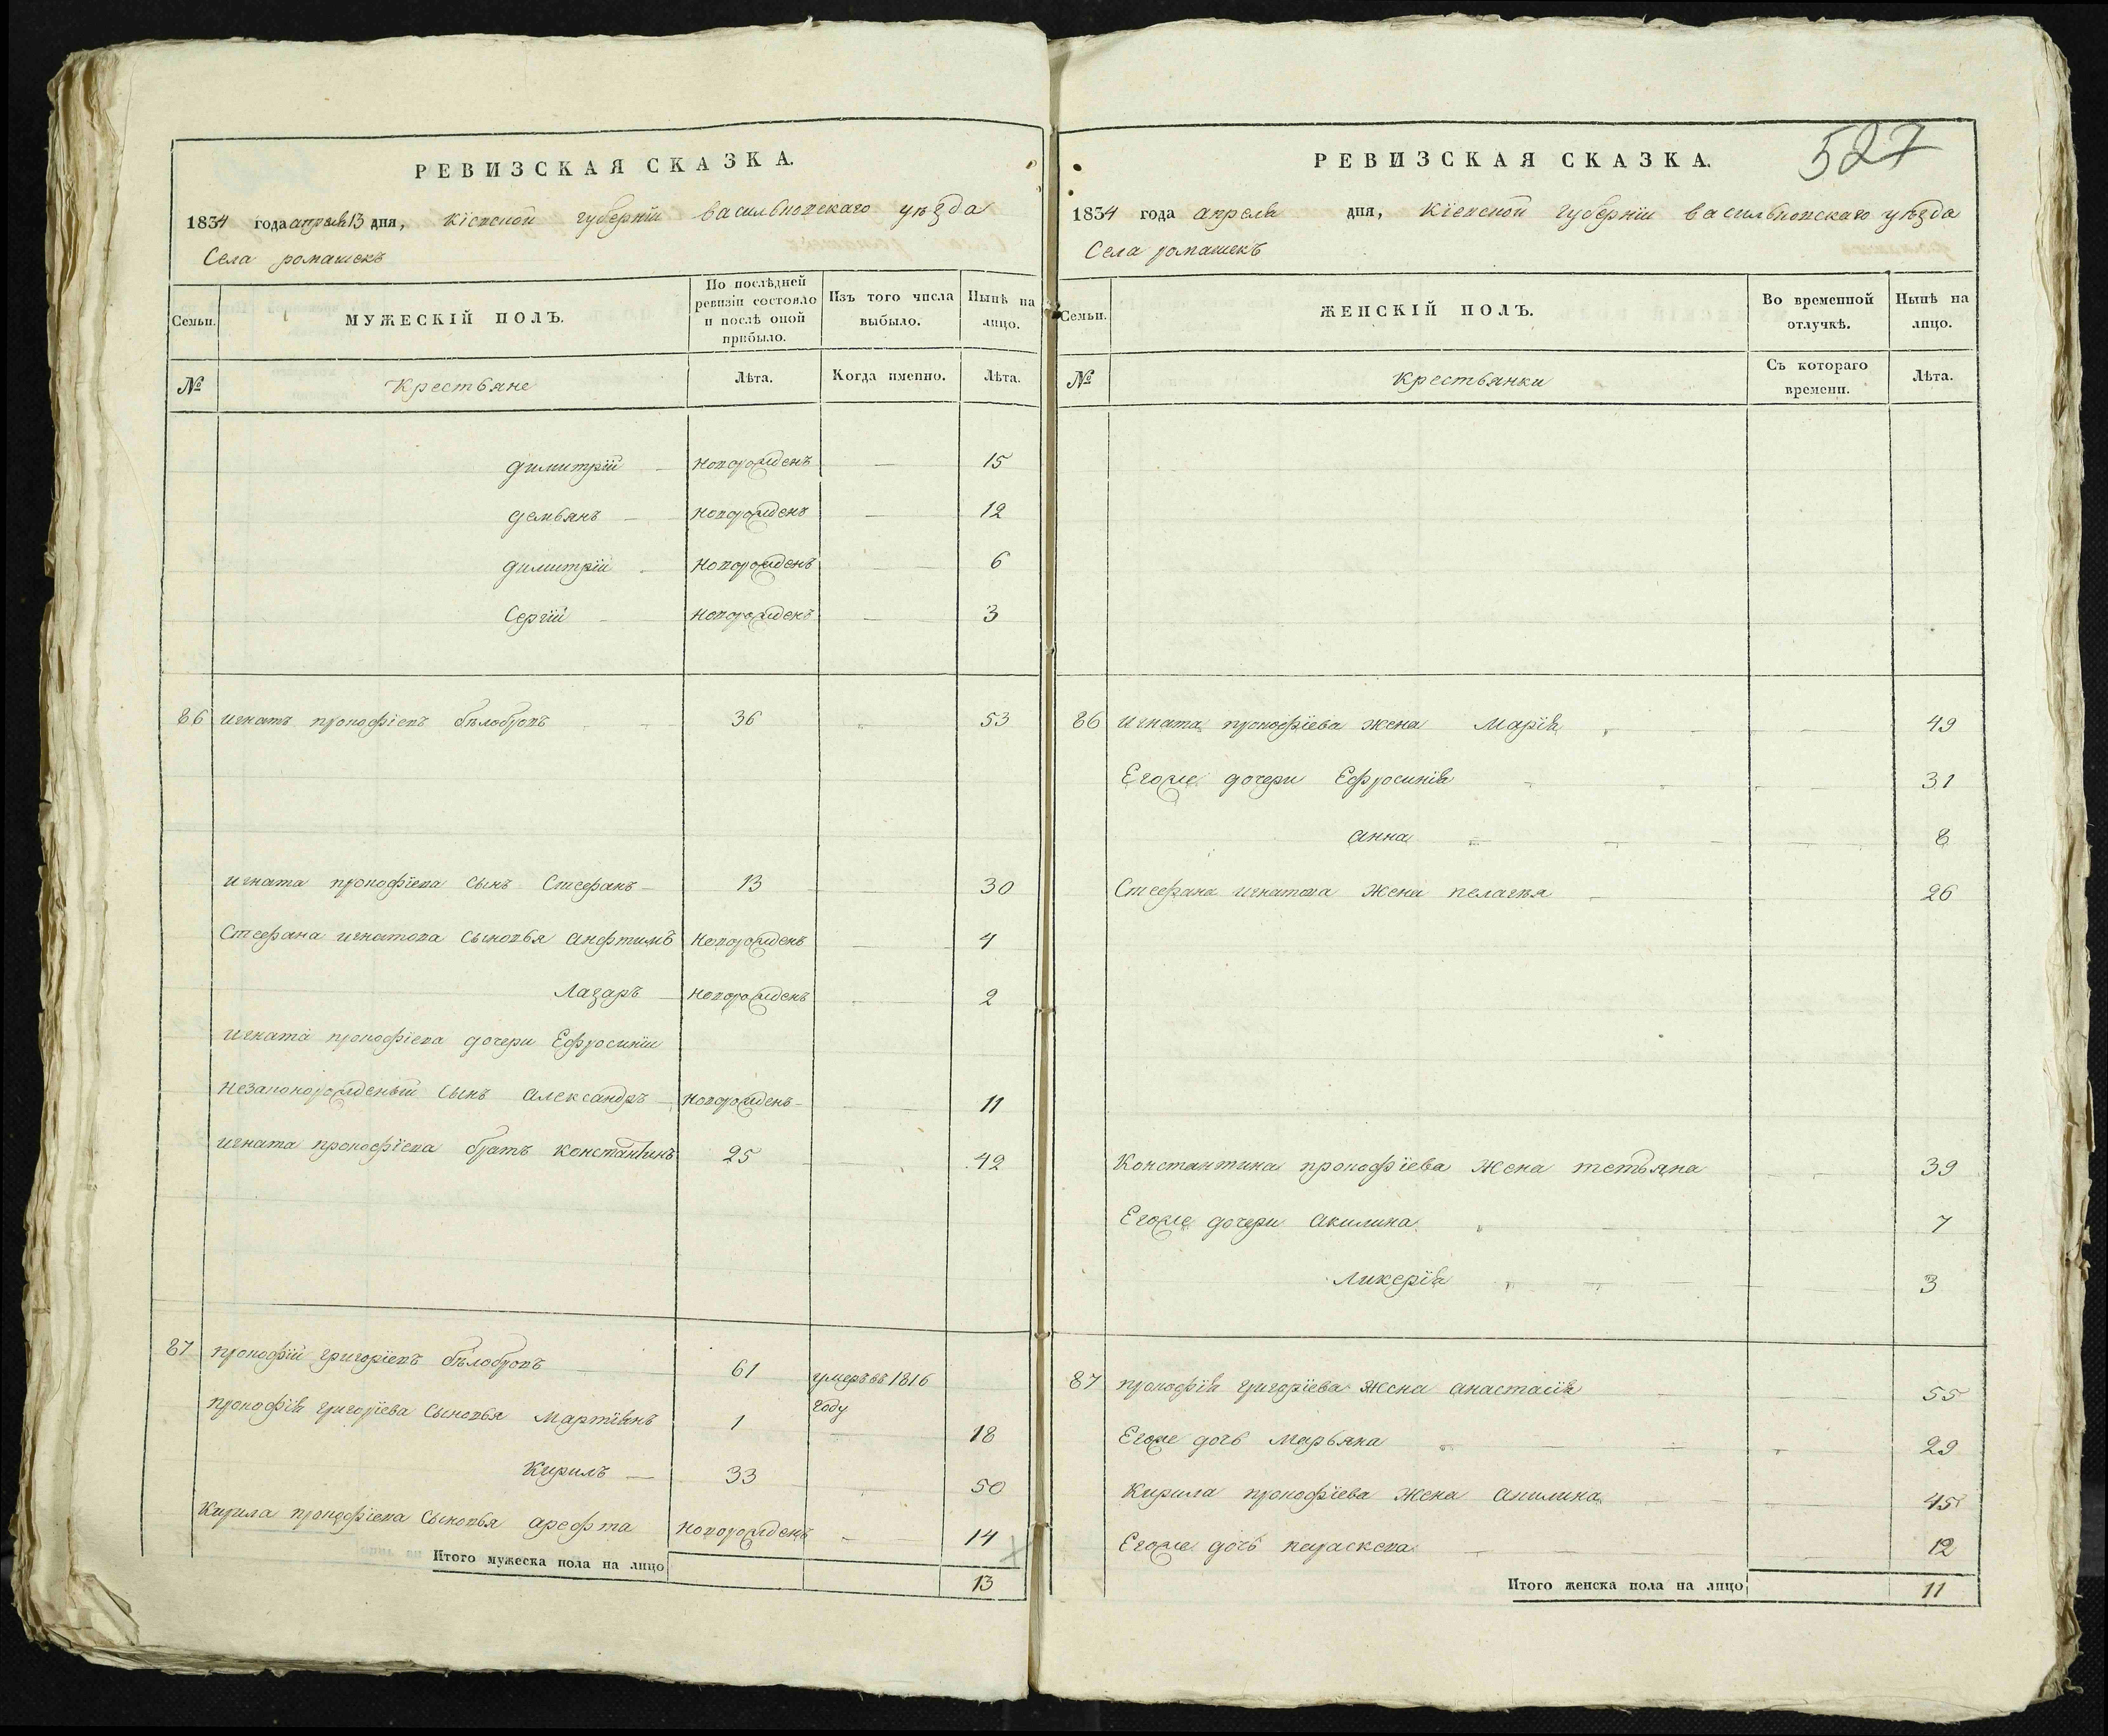 РЕВИЗСКАЯ СКАЗКА.
1834 года апреля 13 дня, Кіевской губерніи васильковскаго уѣзда
Села ромашекъ
Семьи.
МУЖЕСКІЙ ПОЛЪ.
По послѣдней ревизіи состояло и послѣ оной прибыло.
Изъ того числа выбыло.
Нынѣ на лицо.
№
Крестьяне
Лѣта.
Когда именно.
Лѣта.
димитрій новорожденъ 15
демьянъ новорожденъ 12
димитрій новорожденъ 6
Сергій новорожденъ 3
86 игнатъ прокофіевъ бѣлобровъ 36 53
игната прокофіева сынъ Стефанъ 13 30
Стефана игнатова сыновья анфтимъ новорожденъ 4
Лазаръ новорожденъ 2
игната прокофіева дочери Ефросиніи
незаконорожденый сынъ александръ новорожденъ 11
игната прокофіева братъ константинъ 25 42
87 прокофій григоріевъ бѣлобровъ 61 умеръ въ 1816 году
прокофія григоріева сыновья Мартиянъ 1 18
Кирилъ 33 50
Кирила прокофіева сыновья арефта новорожденъ 14
Итого мужеска пола на лицо 13
527
РЕВИЗСКАЯ СКАЗКА.
1834 года апреля дня, Кіевской губерніи васильковскаго уѣзда
Села ромашекъ
Семьи.
ЖЕНСКІЙ ПОЛЪ.
Во временной отлучкѣ.
Нынѣ на лицо.
№
Крестьянки
Съ котораго времени.
Лѣта.
86 игната прокофіева жена Марія 49
Егоже дочери Ефросинія 31
анна 8
Стефана игнатова жена пелагея 26
Константина прокофіева жена тетьяна 39
Егоже дочери акилина 7
Ликерія 3
87 прокофія григоріева жена анастасія 55
Егоже дочь марьяна 29
Кирила прокофіева жена акилина 45
Егоже дочь параскева 12
Итого женска пола на лицо 11